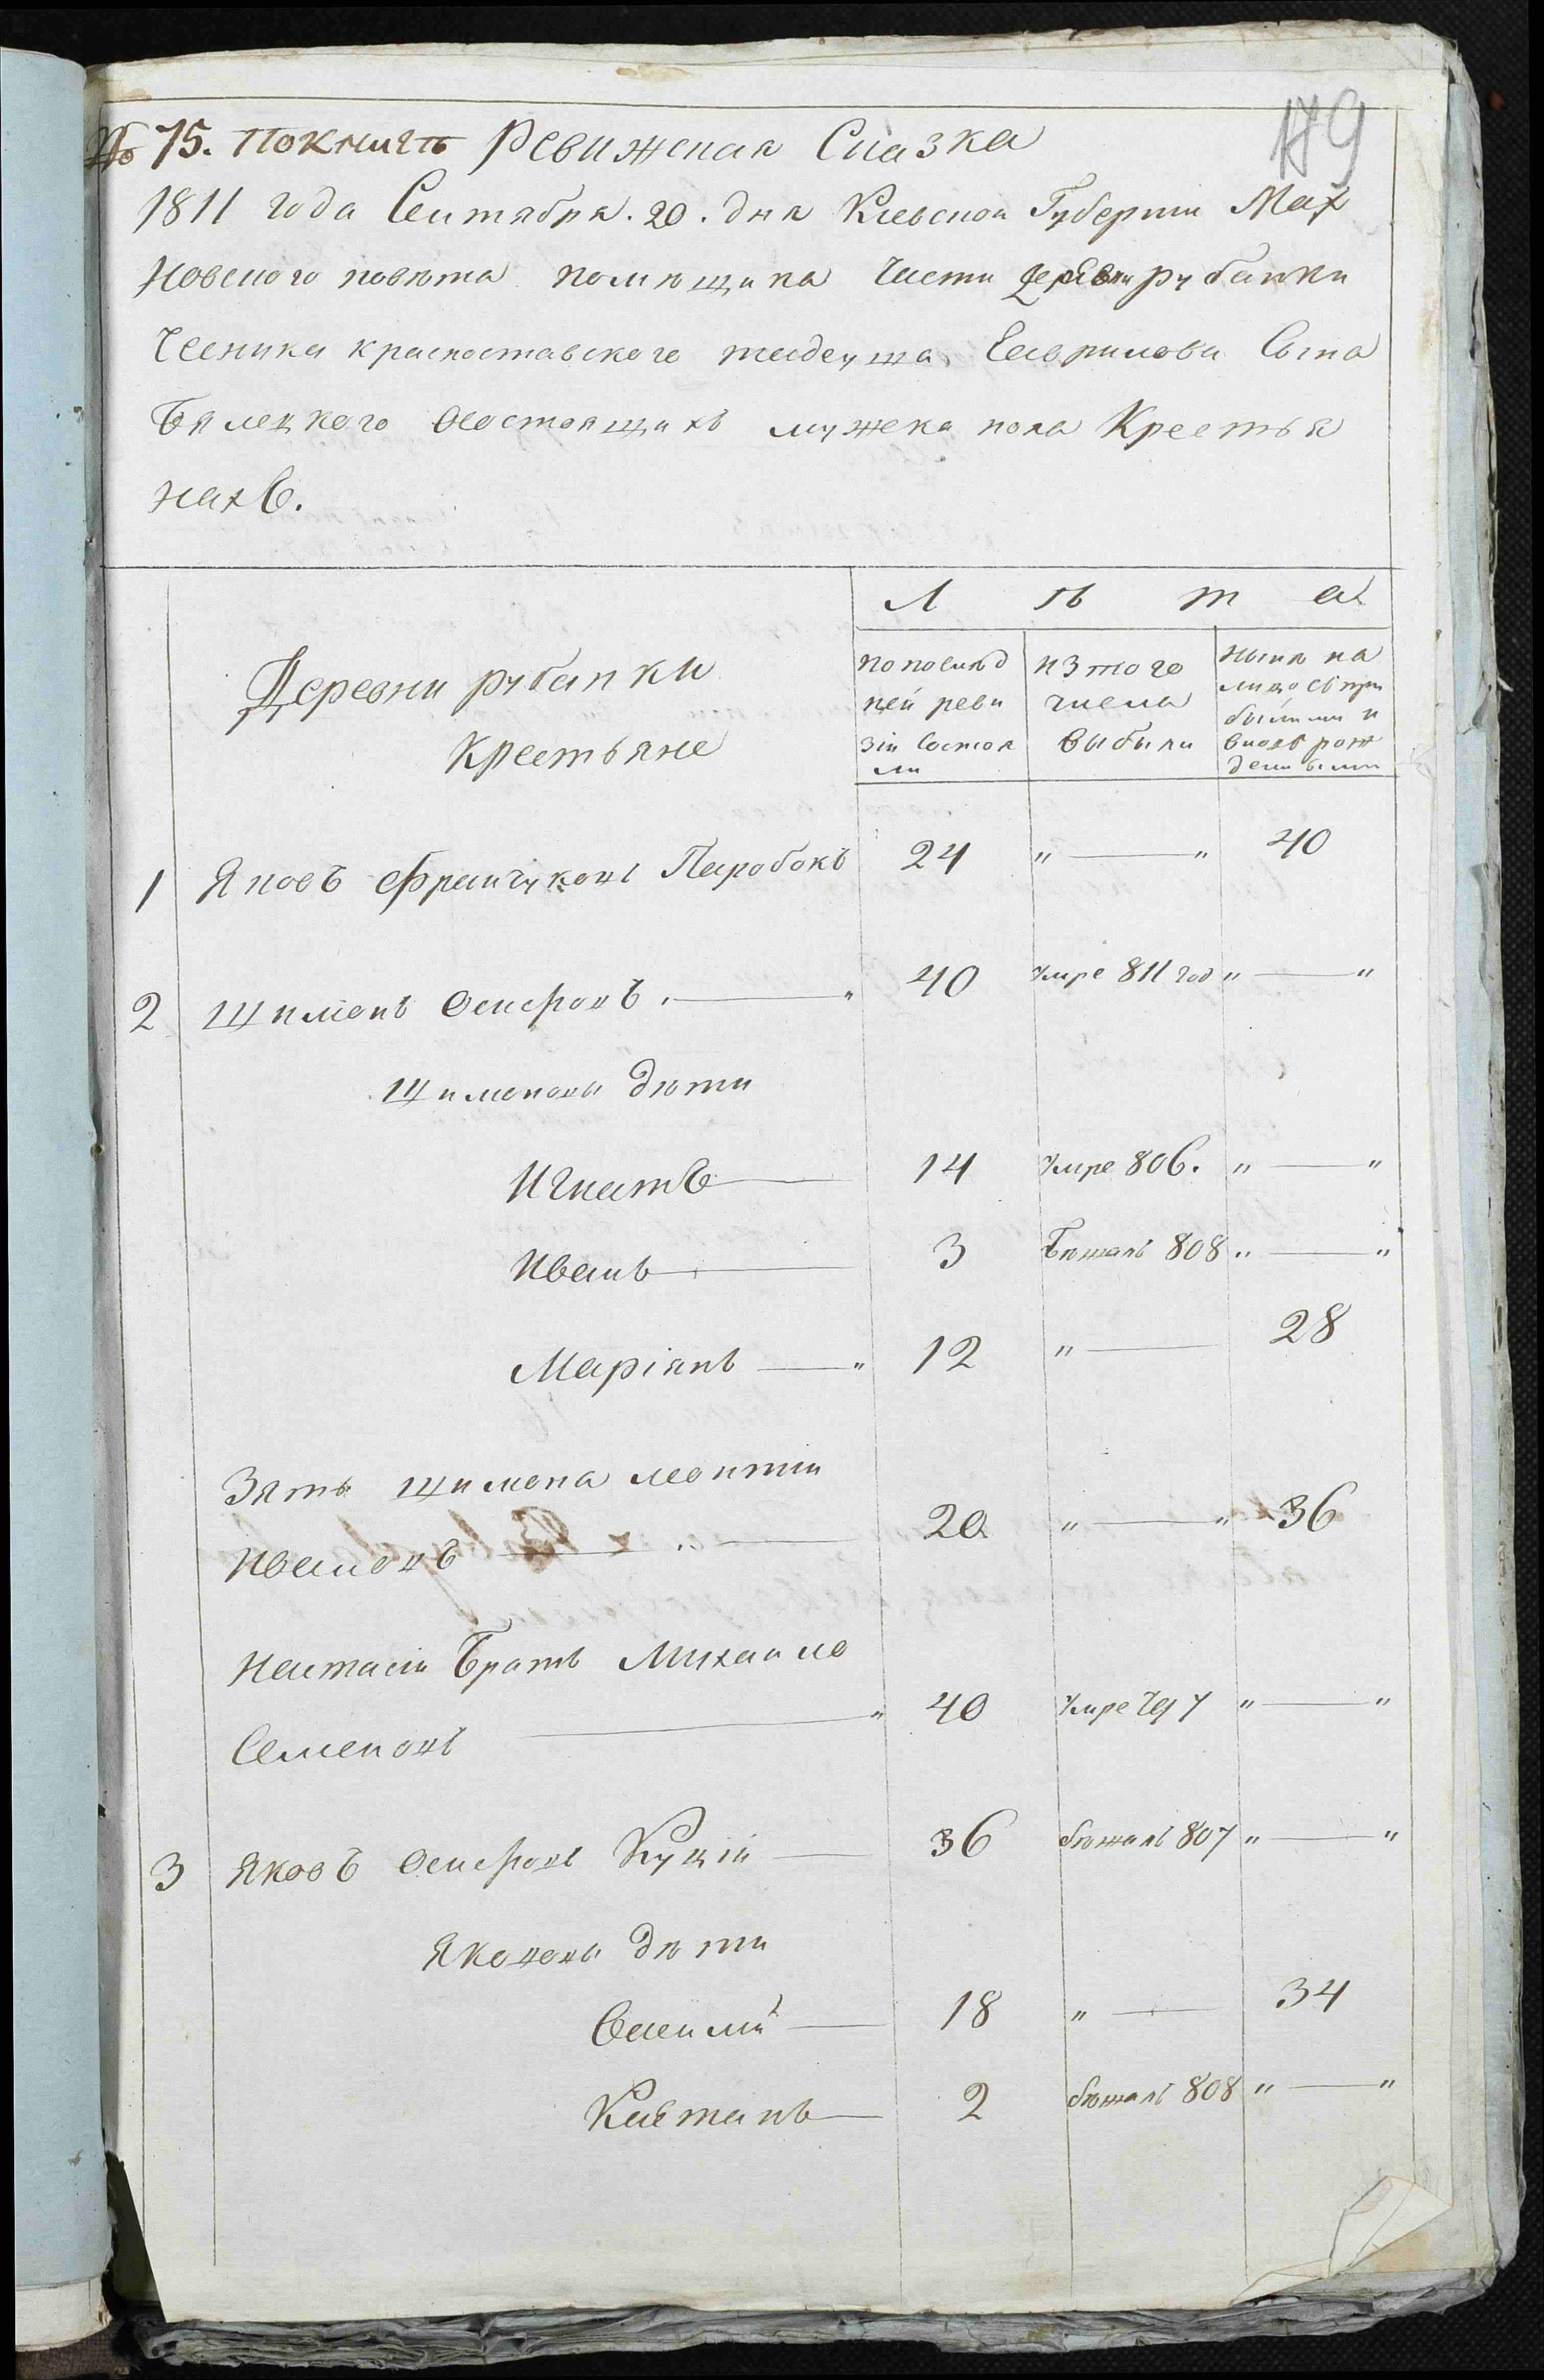 179
№ 75. По книгѣ Ревижская Сказка
1811 года Сентября. 20. дня Киевской Губернии Мах
новского повѣта помѣщика части деревни рубанки
Чесника красноставского тадеуша Гаврилова Сына
Бялецкого Состоящихъ мужска пола Крестья
нахъ.
Л ѣ т а
Деревни рубанки
крестьяне
по послѣд
ней реви
зіи Состоя
ли
изтого
числа
выбыли
нынѣ на
лицо съ при
былыми и
вновь рож
денными
1 Яковъ Франчуковъ Паробокъ 24 „ — „ 40
2 Щиманъ Осифовъ. — „ 40 умре 811 год „ — „
Щиманова дѣти
Игнатъ — 14 умре 806. „ — „
Иванъ — 3 Бѣжалъ 808 „ — „
Маріянъ — „ 12 „ — 28
Зять щимана леонтіи
Ивановъ — „ — 20 „ — „ 36
Настасіи Братъ Михаило
Семеновъ — „ 40 умре „ — „
3 Яковъ Осифовъ Куцій — 36 бѣжалъ 807 „ — „
Яковова дѣти
Василій — 18 „ — 34
Каетанъ — 2 бѣжалъ 808 „ — „